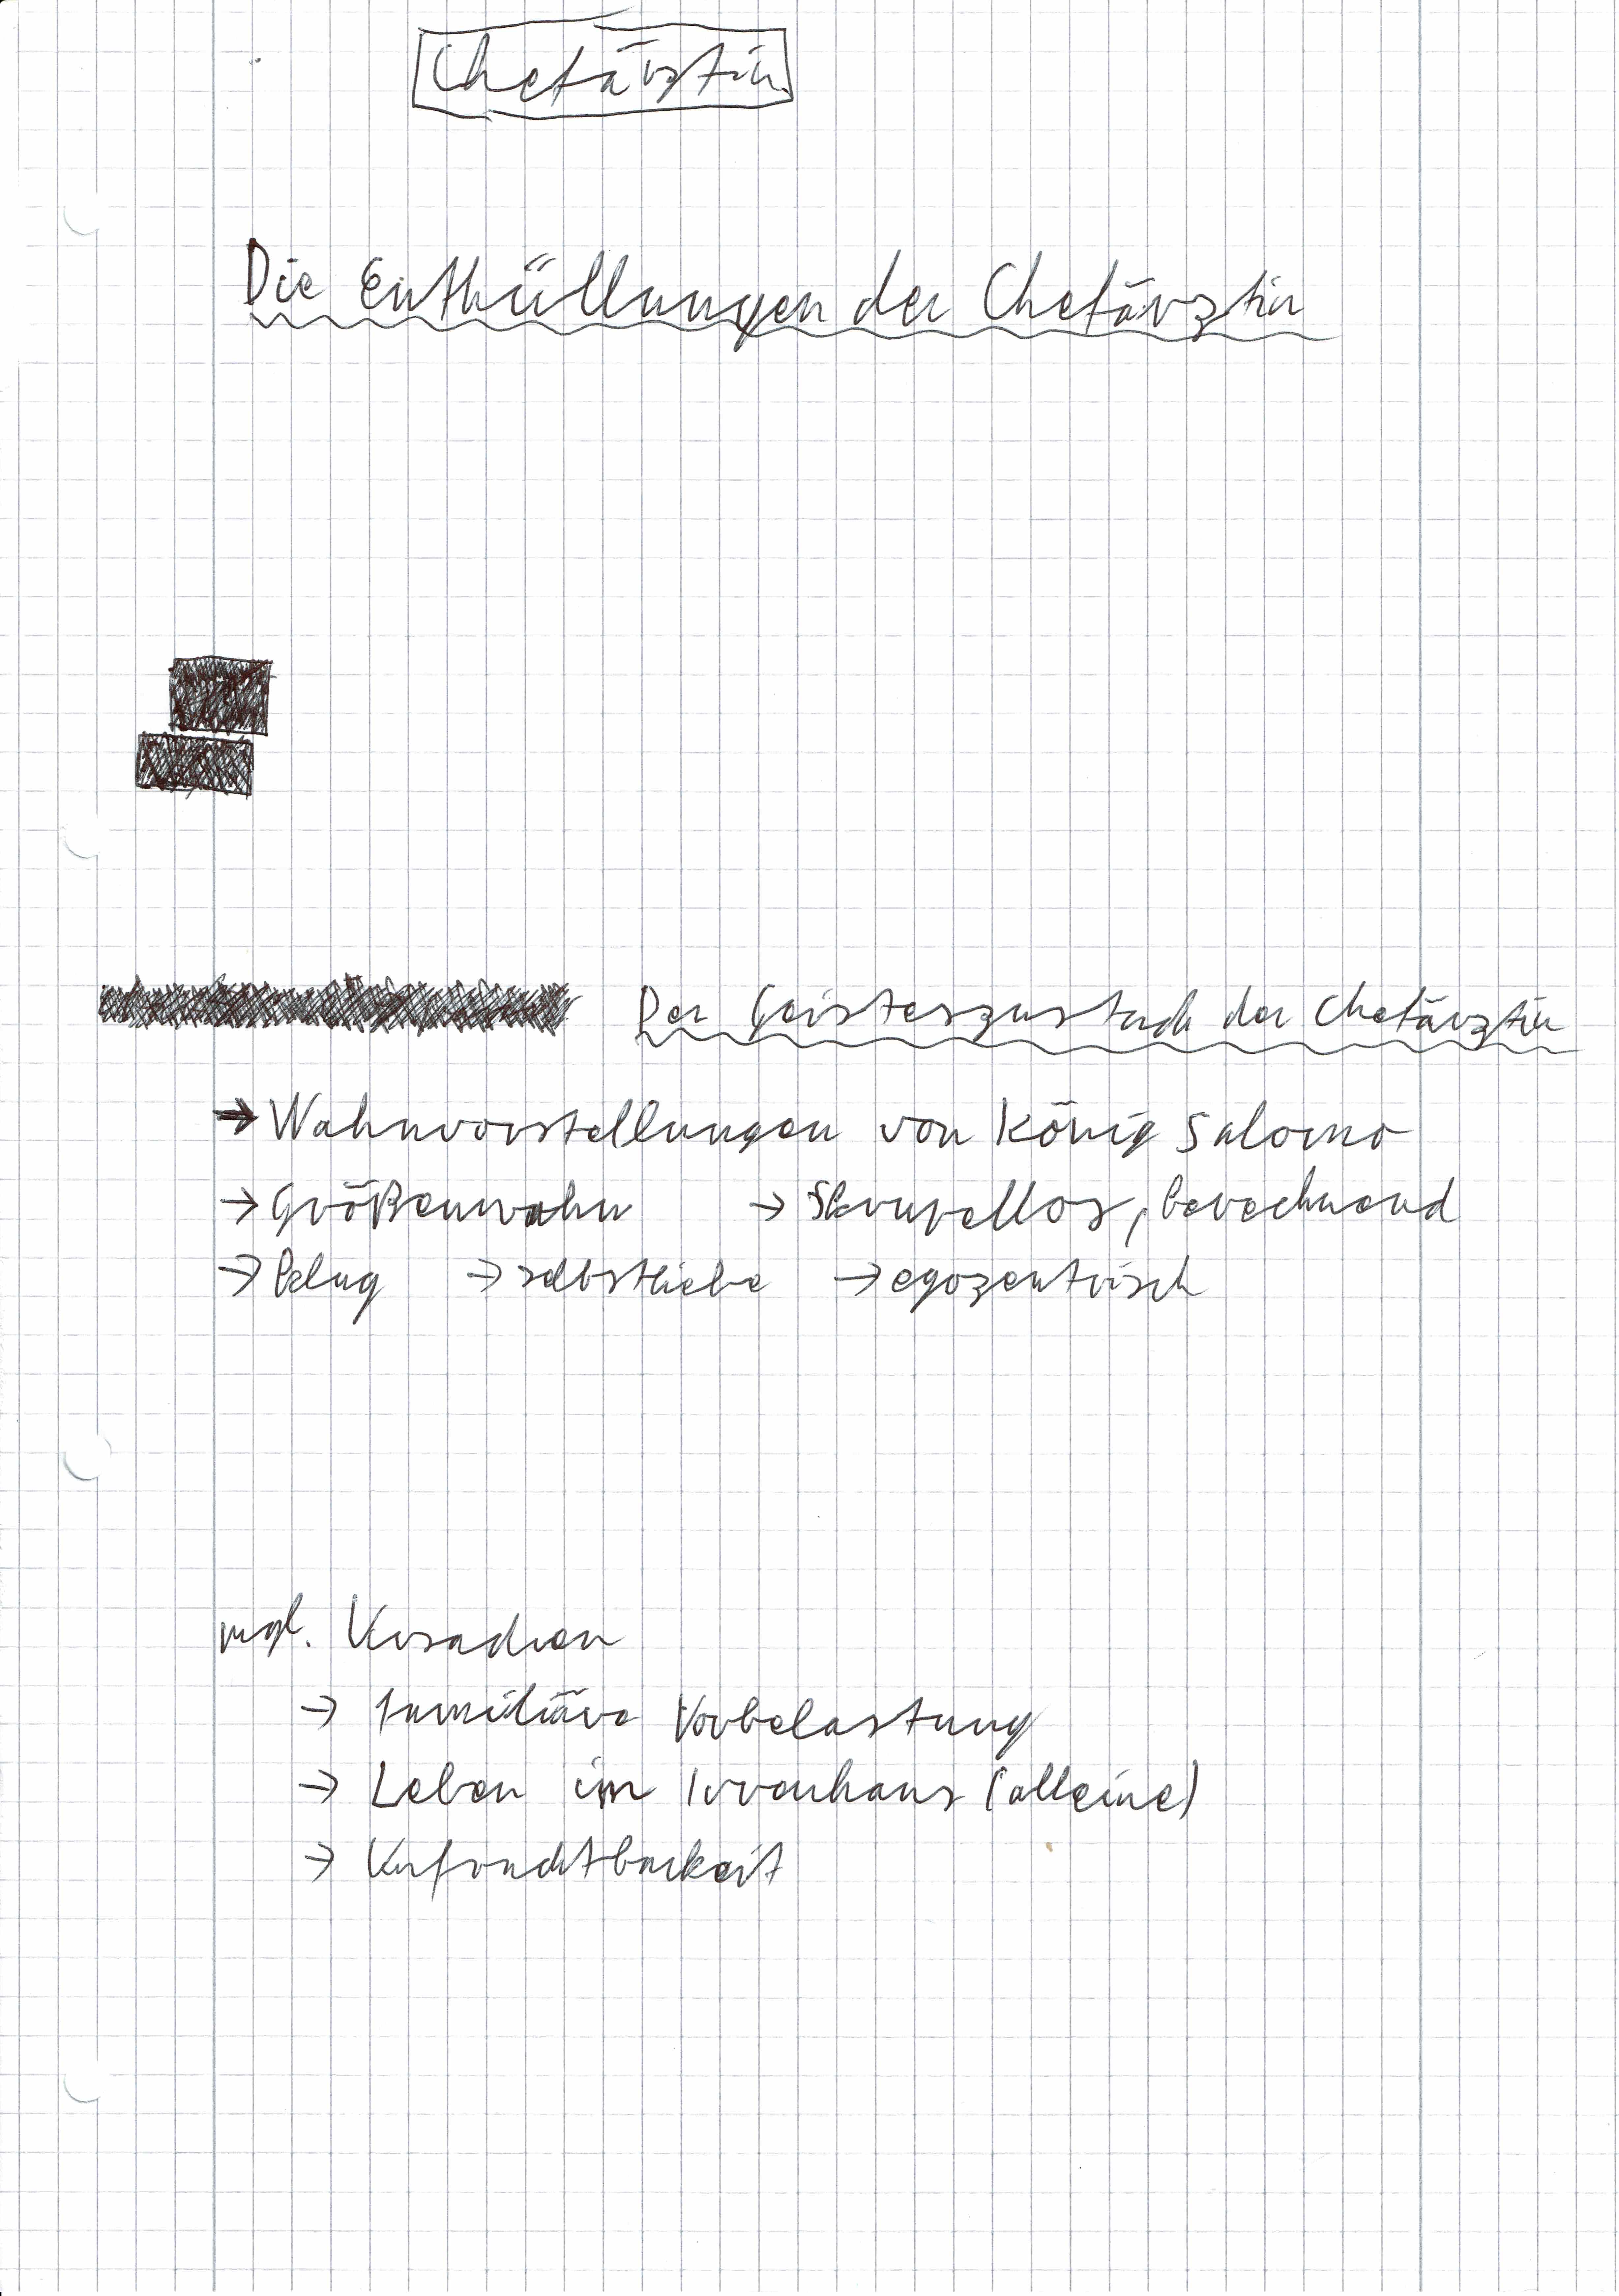 Chefärztin
Die Enthüllungen der Chefärztin
Der Geisteszustand der Chefärztin
→ Wahnvorstellungen von König Salomo
→ Größenwahn → Skrupellos, berechnend
→ klug → selbstliebe → egozentrisch
mgl. Ursachen
→ familiäre Vorbelastung
→ Leben im Irrenhaus (alleine)
→ Unfruchtbarkeit